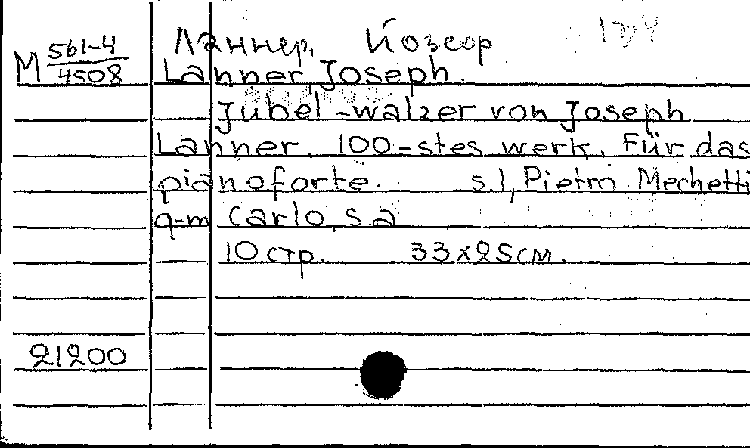 Ланнер, Йозеф
М 561-4/4508 Lanner, Joseph.
Jubel-walzer von Joseph
Lanner. 100-stes werk. Für das
pianoforte. s.l, Pietro Mechetti
q-m Carlo, s.a
10 стр. 33x25см.
21200